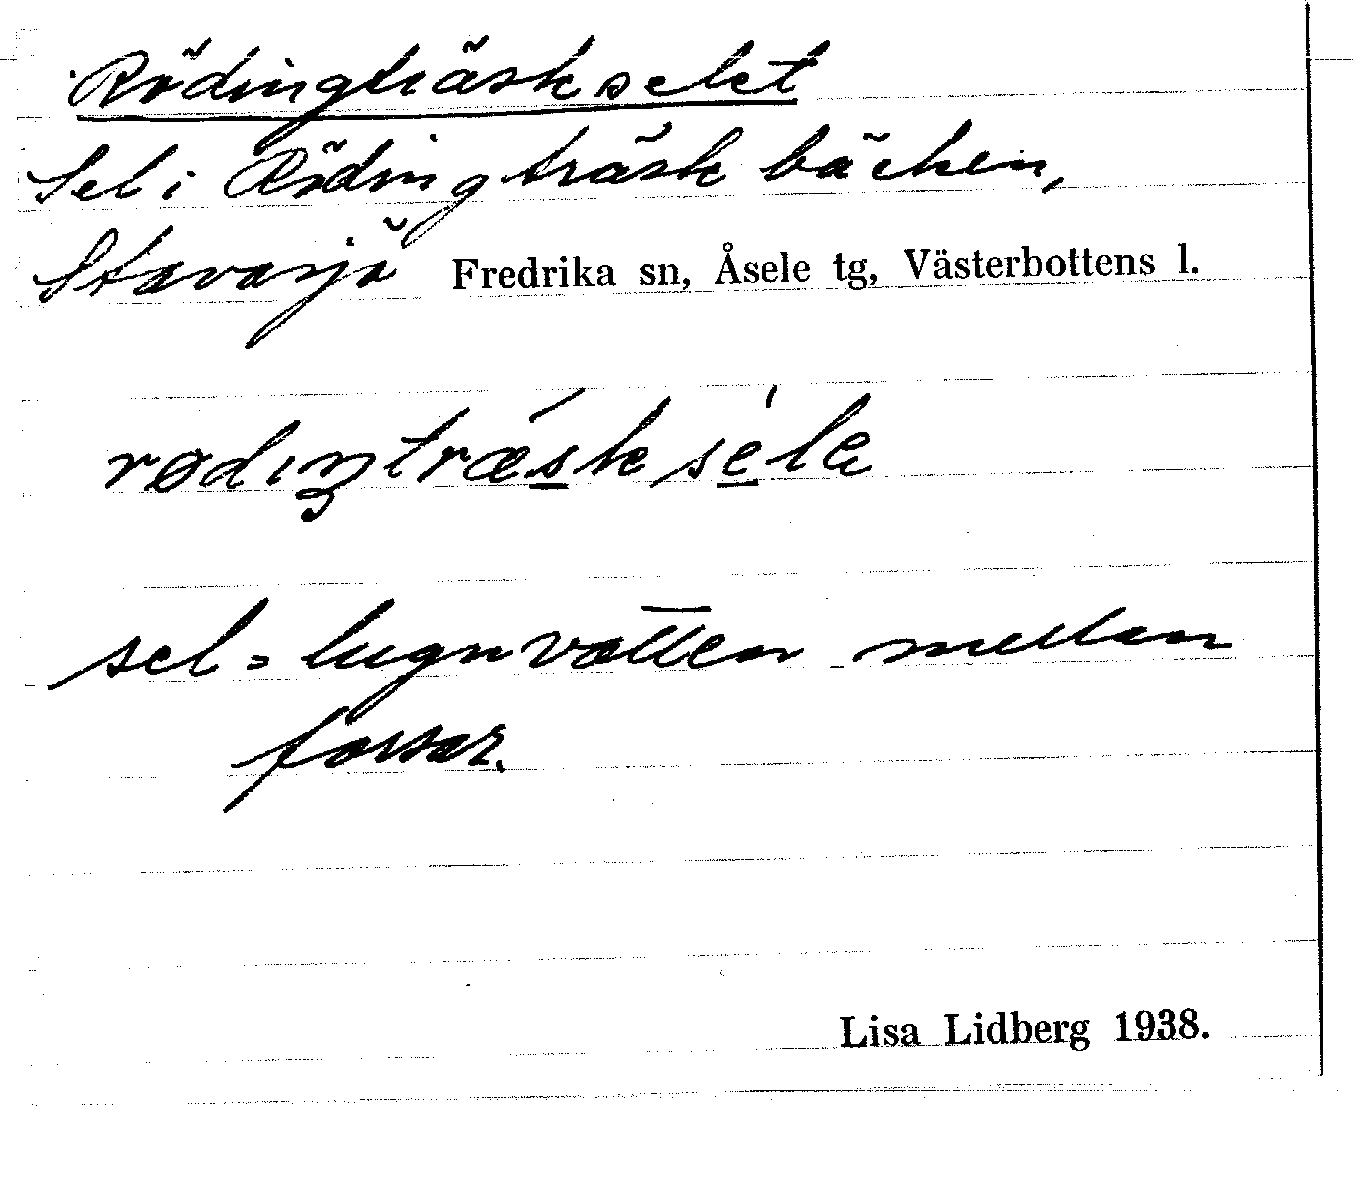 Rödingträskselet
Sel i Rödingträskbäcken,
Stavarsjö Fredrika sn, Åsele tg, Västerbottens l.
rødıŋtræsksele
sel = lugnvatten mellan
forsar.
Lisa Lidberg 1938.